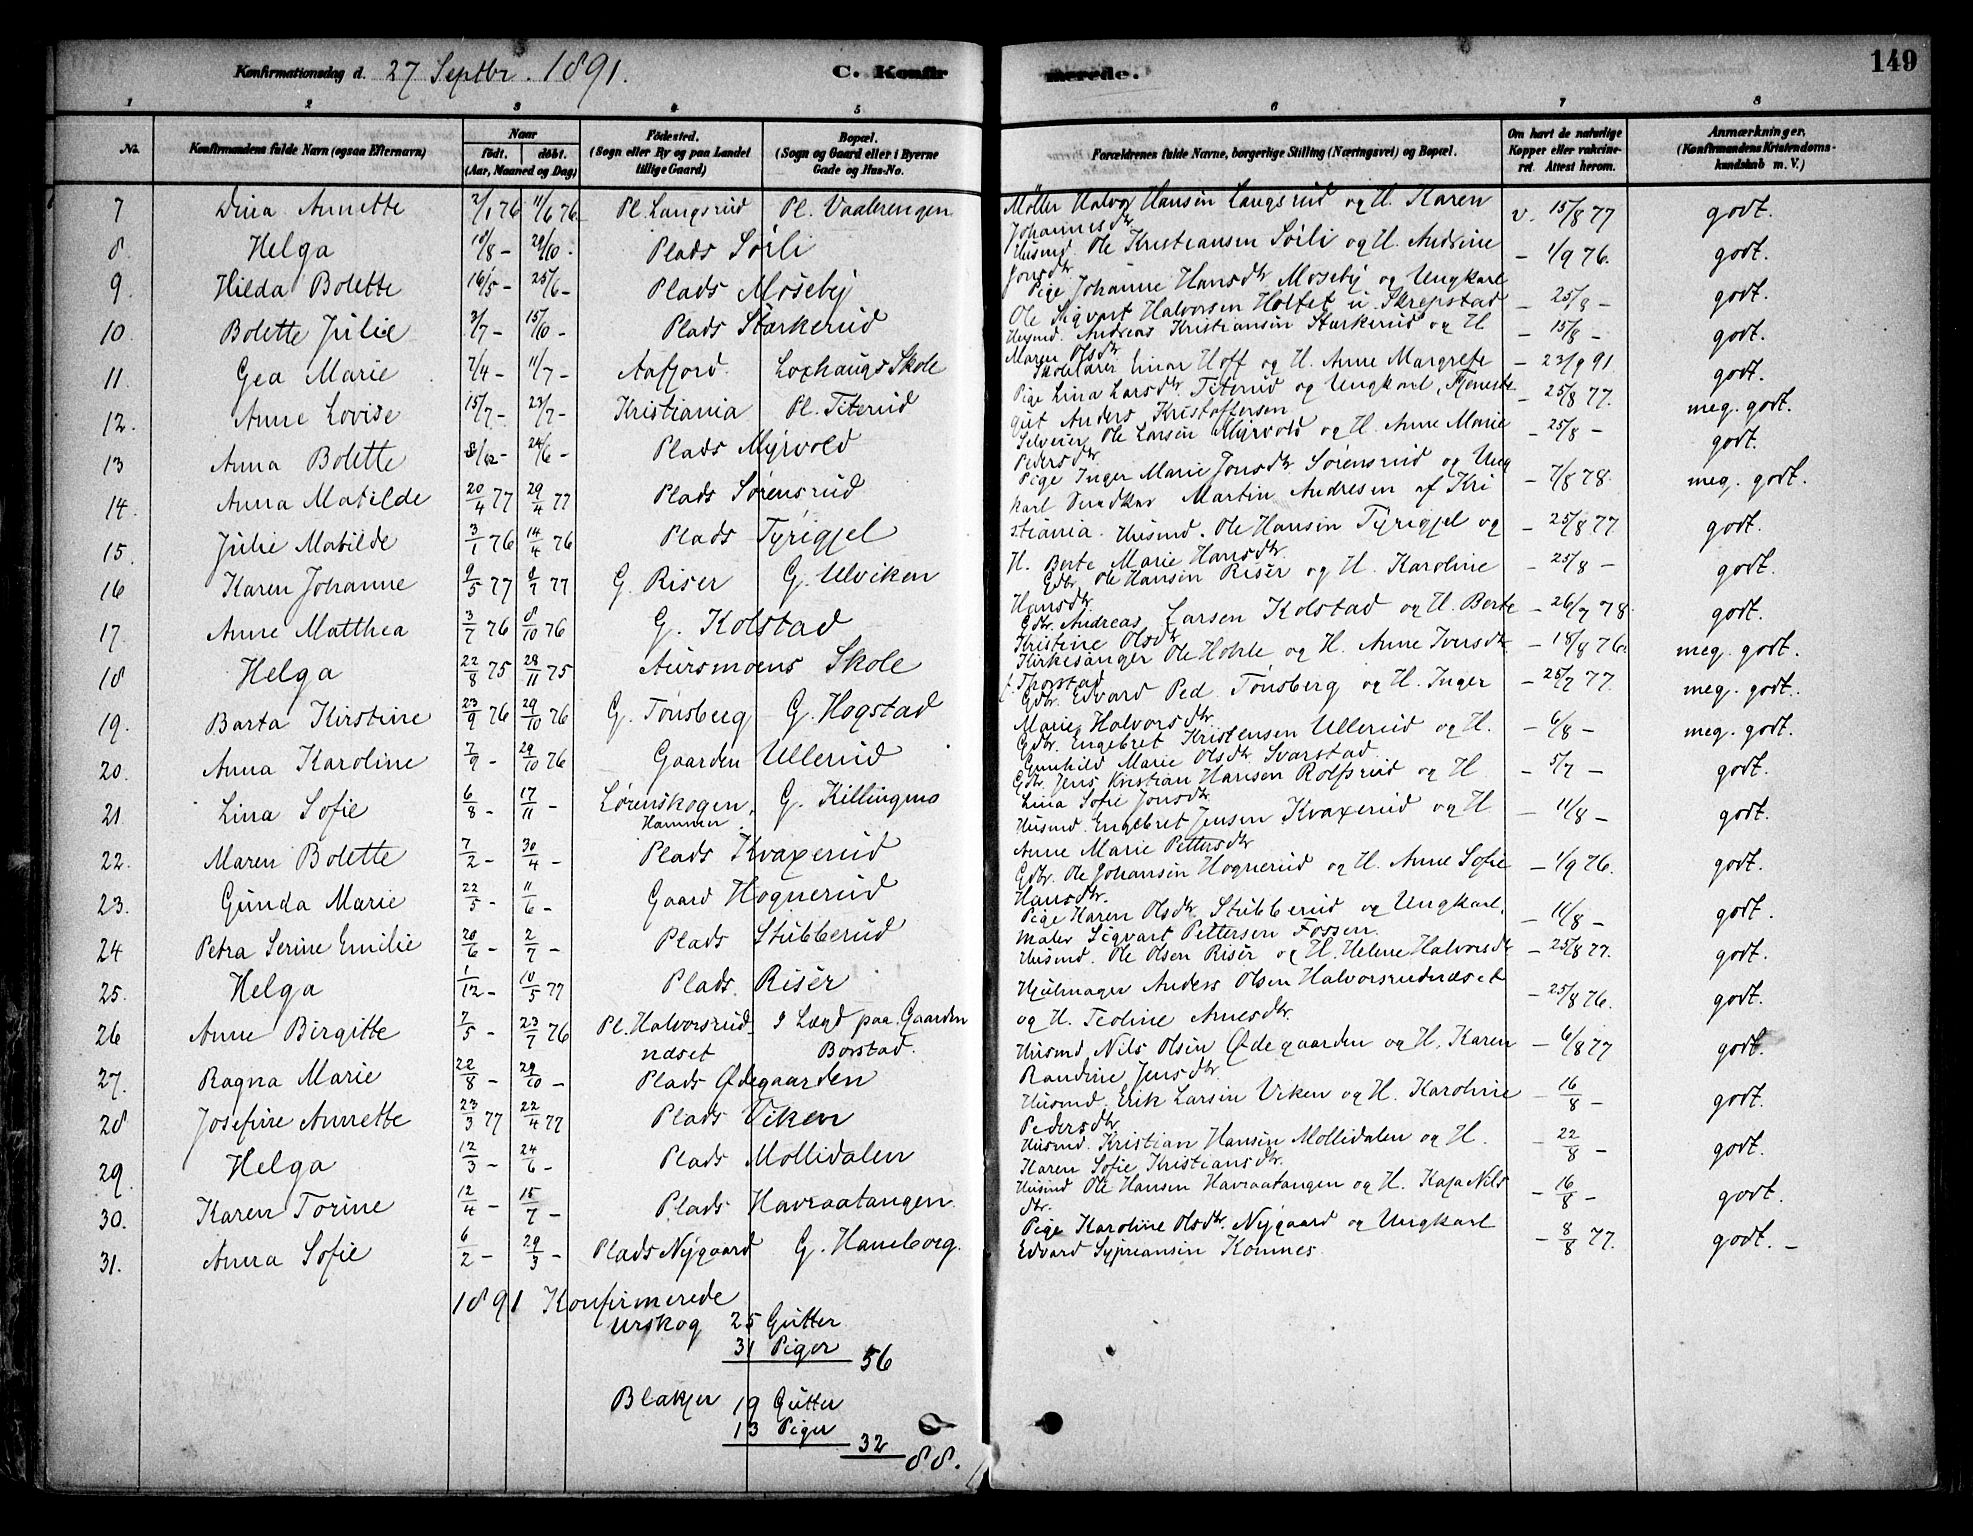 Konfirmationsdag d. 27 Septbr. 1891. C. Konfirmerede. 149
1 2 3 4 5 6 7 8
No. Konfirmandens fulde Navn (ogsaa Efternavn) Naar født. døbt. (Aar, Maaned og Dag) Fødested. (Sogn eller By og paa Landet tillige Gaard) Bopæl. (Sogn og Gaard eller i Byerne Gade og Hus-No. Forældrenes fulde Navne, borgerlige Stilling (Næringsvei) og Bopæl. Om havt de naturlige Kopper eller vakcineret. Attest herom. Anmærkninger. (Konfirmandens Kristendomskundskab m. V.)
7 Dina Annette 2/1 76 11/6 76 Pl. Langsrud Pl. Vaalerengen Møller Halvor Hansen Langsrud og H. Karen Johannesdtr v. 15/8 77 godt.
8. Helga 18/8 - 29/10 - Plads Sørli Husmd Ole Kristiansen Sørli og H. Andrine Jonsdtr - 1/9 76. godt.
9 Hilda Bolette 16/5 - 25/6 - Plads Moseby Pige Johanne Hansdtr Moseby og Ungkarl Ole Sigvart Halvorsen Holtet u. Skrepstad - 25/8 - godt.
10. Bolette Julie 3/7 - 15/10 - Plads Stærkerud Husmd. Andreas Kristiansen Stærkerud og H Maren Olsdtr - 15/8 - godt.
11. Gea Marie 7/4 - 11/7 - Aafjord. Loxhaugs Skole Skolelærer Einar Hoff og H. Anne Margrete - 23/9 91 godt.
12. Anne Lovise 15/7 - 23/7 - Kristiania Pl. Titerud Pige Lina Larsdtr Titerud og Ungkarl, Tjenestegut Anders Kristoffersen - 25/8 77. meg. godt.
13 Anna Bolette 8/12 - 24/6 - Plads Myrvold Selveier Ole Larsen Myrvold og H. Anne Marie Pedersdtr - 25/8 - godt.
14. Anna Matilde 20/4 77 29/4 77 Plads Sørensrud Pige Inger Marie Jonsdtr Sørensrud og Ungkarl Martin Andresen af Kristiania. - 7/8 78. meg. godt.
15. Julie Matilde 3/1 76 14/4 76 Plads Tyrigjel Husmd. Ole Hansen Tyrigjel og H. Berte Marie Hansdtr. - 25/8 77 godt.
16 Karen Johanne 9/5 77 8/7 77 G. Riser G. Ulviken Gdbr. Ole Hansen Riser og H. Karoline Hansdtr. - 25/8 - godt.
17. Anne Matthea 3/7 76 8/10 76 G. Kolstad Gdbr. Andreas Larsen Kolstad og H. Berte Kristine Olsdtr - 26/7 78. godt.
18 Helga 22/8 75 28/11 75 Aursmoens Skole Kirkesanger Ole Hohle og H. Anne Iversdtr f. Thorstad - 18/8 76. meg. godt.
19. Barta Kirstine 23/9 76 29/10 76 G. Tønsberg G. Hogstad Gdbr. Edvard Ped. Tønsberg og H. Inger Marie Halvorsdtr. - 25/7 77. meg. godt..
20. Anna Karoline 7/9 - 29/10 76 Gaarden Ullerud Gdbr. Engebret Kristensen Ullerud og H. Gunhild Marie Olsdtr Svarstad - 6/8 - meg. godt.
21 Lina Sofie 6/8 - 17/11 - Lørenskogen, Hammer G. Killingmo Gdbr. Jens Kristian Hansen Rolfsrud og H Lina Sofie Jonsdtr. - 5/7 - godt.
22. Maren Bolette 7/2 - 30/4 - Plads Kvaxerud Husmd. Engebret Jensen Kvaxerud og H Anne Marie Pettersdtr - 11/8 - godt.
23. Gunda Marie 22/5 - 11/6 - Gaard Hognerud Gdbr. Ole Johansen Hognerud og H. Anne Sofie Hansdtr. - 1/9 76. godt.
24 Petra Serine Emilie 20/6 - 2/7 - Plads Stubberud Pige Karen Olsdtr. Stubberud og Ungkarl, Maler Sigvart Pettersen Fossen. - 11/8 - godt.
25. Helga 1/12 - 10/5 77 Plads Risér Husmd. Ole Olsen Risér og H. Helene Halvorsdtr - 25/8 77. godt.
26 Anne Birgitte 7/5 - 23/7 76 Pl. Halvorsrudnæset I Lægd paa Gaarden Borstad. Hjulmager Anders Olsen Halvorsrudnæset og H. Teoline Arnesdtr. - 25/8 76. godt.
27. Ragna Marie 22/8 - 29/10 - Plads Ødegaarden Husmd Nils Olsen Ødegaarden og H. Karen Randine Jensdtr. - 6/8 77 godt.
28 Josefine Annette 23/3 77 22/4 77 Plads Viken Husmd. Erik Larsen Viken og H. Karoline Pedersdtr - 16/8 - godt.
29. Helga 12/3 - 24/6 - Plads Mollidalen Husmd. Kristian Hansen Mollidalen og H. Karen Sofie Kristiansdtr. - 22/8 - godt.
30. Karen Torine 12/4 - 15/7 - Plads Havraatangen Husmd Ole Hansen Havraatangen og H. Kaja Nilsdtr. - 16/8 - godt.
31. Anna Sofie 6/2 - 29/3 - Plads Nygaard G. Haneborg. Pige Karoline Olsdtr. Nygaard og Ungkarl Edvard Sypriansen Komnes. - 8/8 77. godt. -
1891 Konfirmerede
Urskog 25 Gutter
31 Piger 56
Blakjer 19 Gutter
13 Piger 32
88.